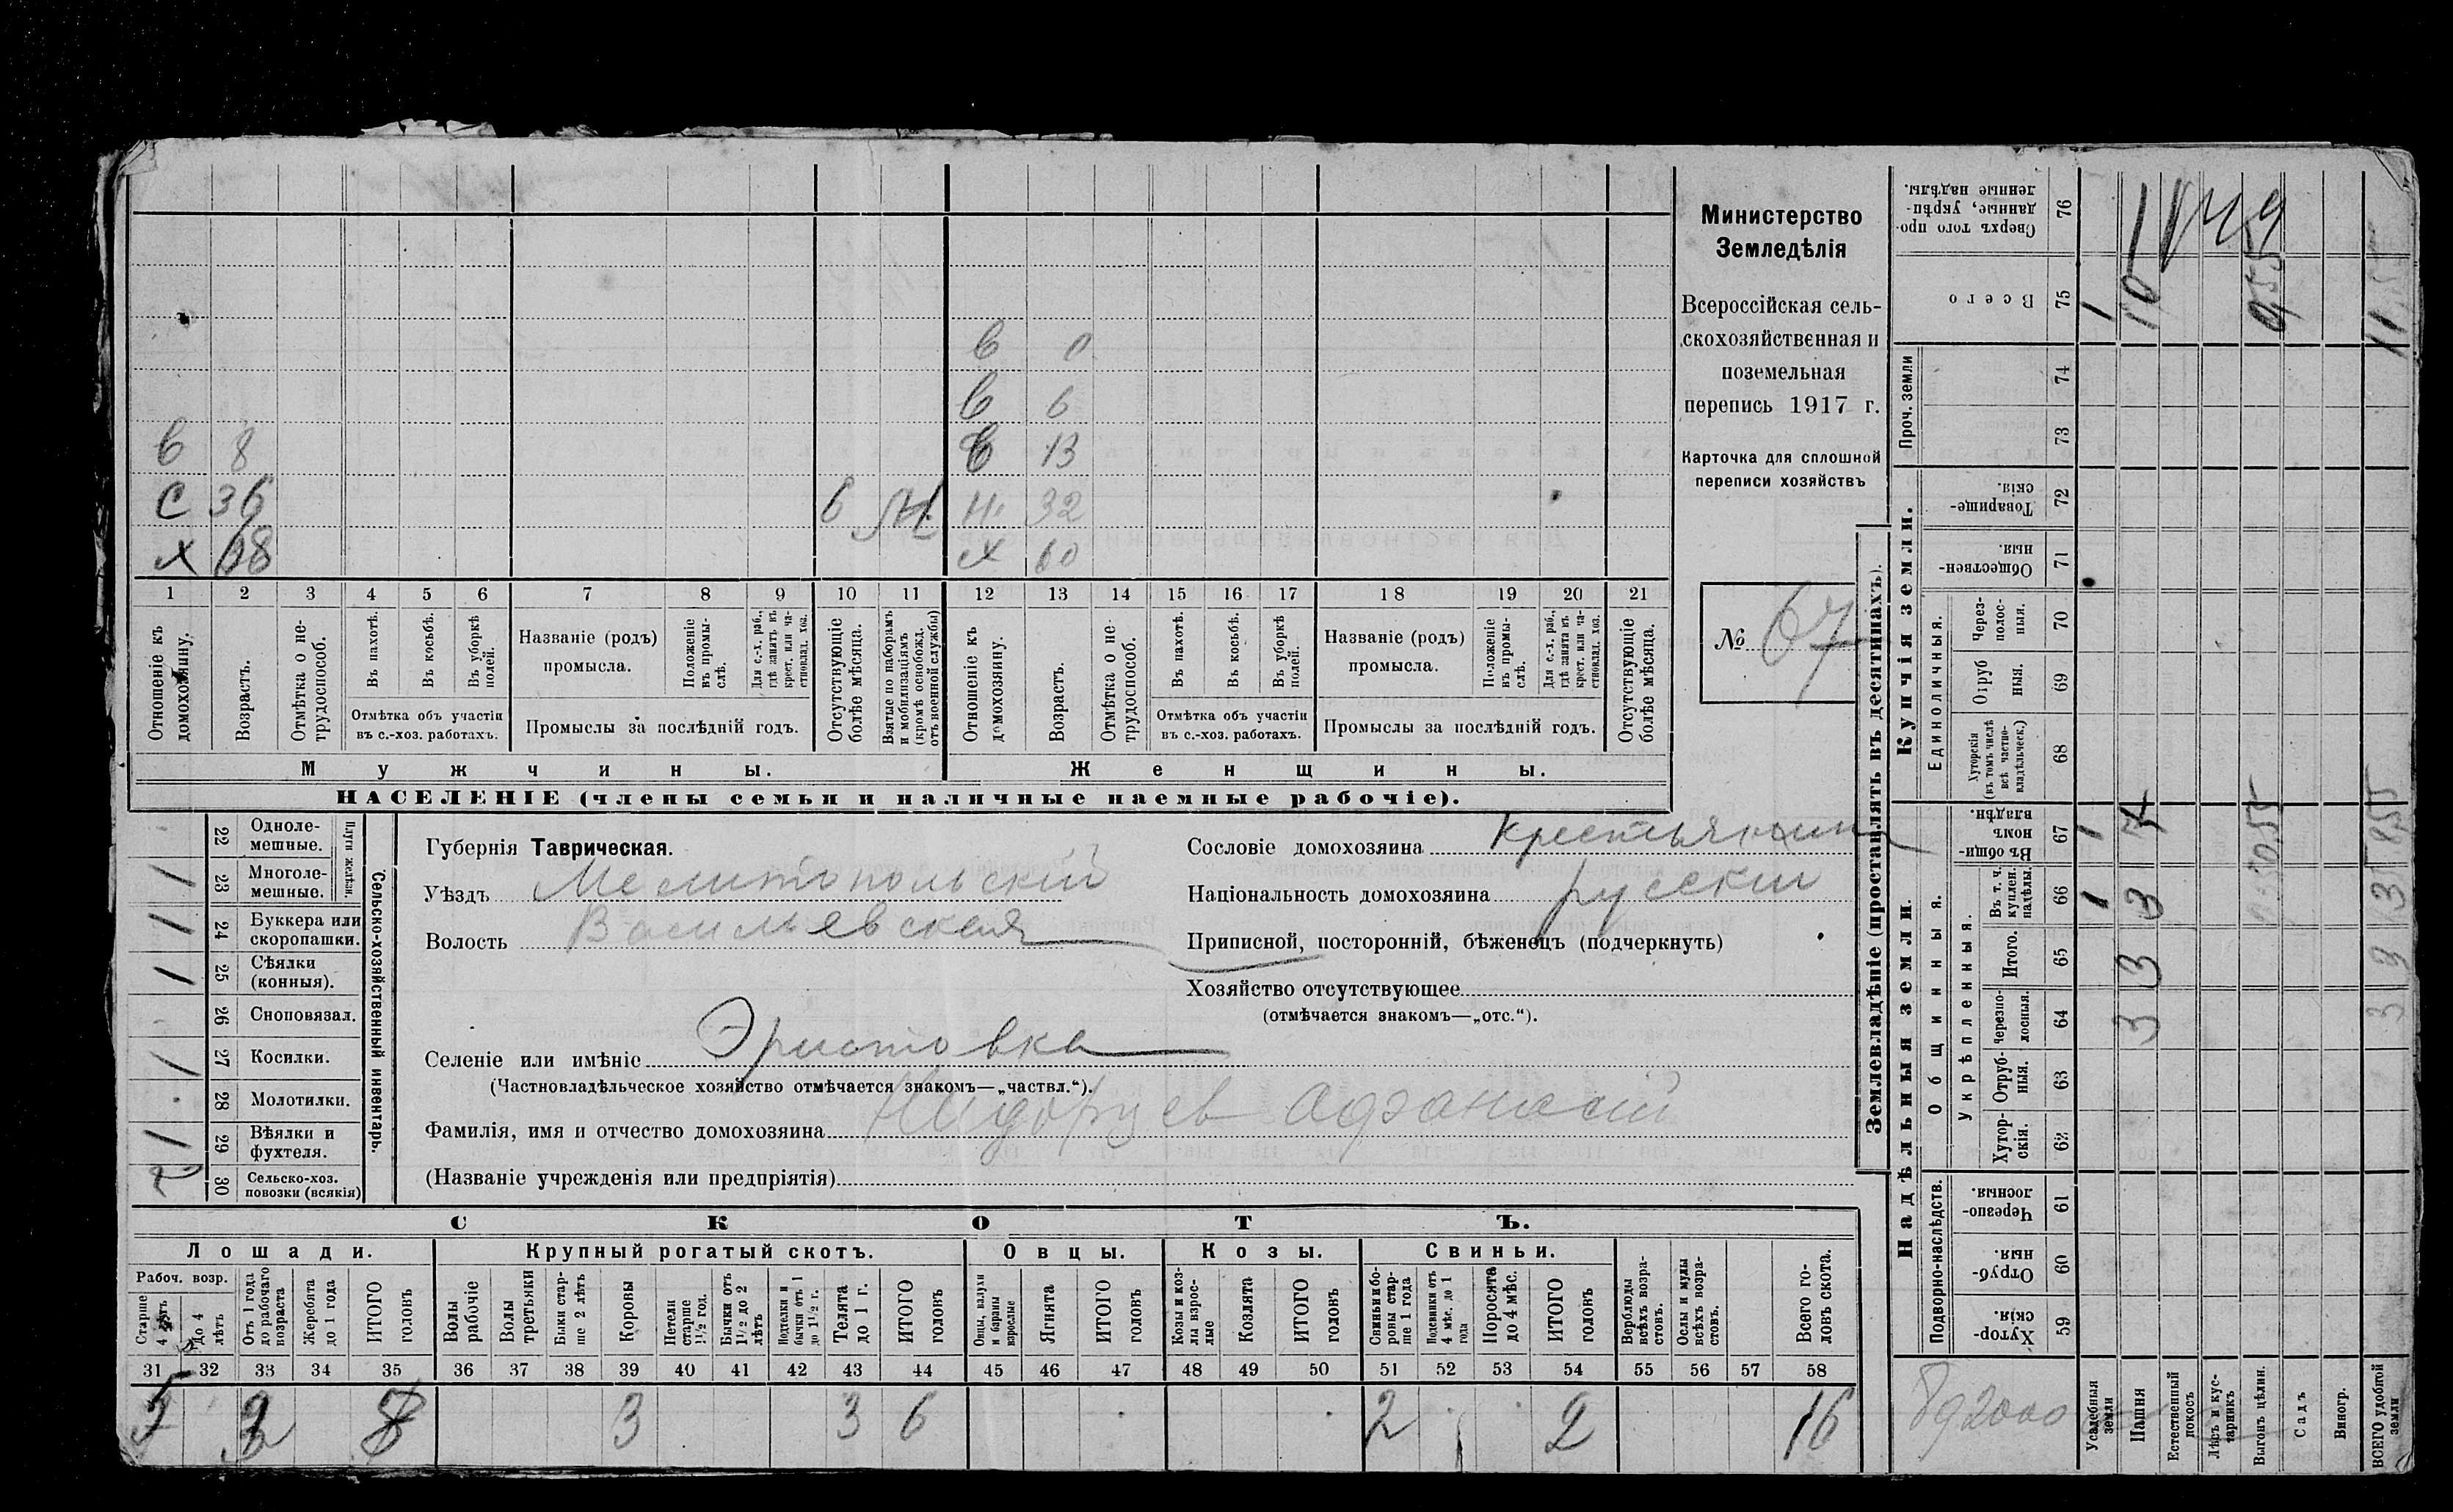 в 0
в 6
в 8 в 13
с 36 6 н 32
х 68 х 60
1 2 3 4 5 6 7 8 9 10 11 12 13 14 15 16 17 18 19 20 21
Отношеніе къ домохозяину.
Возрастъ.
Отмѣтка о не-
трудоспособ.
Въ пахотѣ.
Въ косьбѣ.
Въ уборкѣ полей.
Отмѣтка объ участіи
въ с.-хоз. работахъ.
Названіе (родъ)
промысла.
Положеніе въ промы-
слѣ.
Для с.-х. раб., гдѣ занятъ въ крест. или ча-
стновлад. хоз.
Промыслы за послѣдній годъ.
Отсутствующіе болѣе мѣсяца.
Взятые по наборамъ и мобилизаціямъ (кромѣ освобожд. отъ военной службы)
Отношеніе къ домохозяину.
Возрастъ.
Отмѣтка о не-
трудоспособ.
Въ пахотѣ.
Въ косьбѣ.
Въ уборкѣ полей.
Отмѣтка объ участіи
въ с.-хоз. работахъ.
Названіе (родъ)
промысла.
Положеніе въ промы-
слѣ.
Для с.-х. раб., гдѣ занята въ крест. или ча-
стновлад. хоз.
Промыслы за послѣдній годъ.
Отсутствующіе болѣе мѣсяца.
Мужчины.
Женщины.
НАСЕЛЕНІЕ (члены семьи и наличные наемные рабочіе).
Министерство
Земледѣлія
Всероссійская сель-
скохозяйственная и
поземельная
перепись 1917 г.
Карточка для сплошной
переписи хозяйствъ
№ 67
Плуги желѣзн.
22 Одноле-
мешные.
1 23 Многоле-
мешные.
1 24 Буккера или
скоропашки.
1 25 Сѣялки
(конныя).
26 Сноповязал.
1 27 Косилки.
28 Молотилки.
1 29 Вѣялки и
фухтеля.
2 30 Сельско-хоз.
повозки (всякія)
Сельско-хозяйственный инвентарь.
Губернія Таврическая.
Уѣздъ Мелитопольскій
Волость Васильевская
Селеніе или имѣніе Эристовка
(Частновладѣльческое хозяйство отмѣчается знакомъ—„частвл.“).
Фамилія, имя и отчество домохозяина Афанасій
(Названіе учрежденія или предпріятія)
Сословіе домохозяина крестьянин
Національность домохозяина русскій
Приписной, посторонній, бѣженецъ (подчеркнуть)
Хозяйство отсутствующее
(отмѣчается знакомъ—„отс.“).
СКОТЪ.
Лошади. Крупный рогатый скотъ. Овцы. Козы. Свиньи.
Рабоч. возр.
Старше 4 лѣтъ
до 4 лѣтъ
Отъ 1 года до рабочаго возраста
Жеребята до 1 года
ИТОГО головъ
Волы рабочіе
Волы третьяки
Быки стар-
ше 2 лѣтъ
Коровы
Нетели старше 1½ год.
Бычки отъ 1½ до 2 лѣтъ
Подтелки и бычки отъ 1 до 1½ г.
Телята до 1 г.
ИТОГО головъ
Овцы, валухи и бараны взрослые
Ягнята
ИТОГО головъ
Козы и коз-
лы взрос-
лые
Козлята
ИТОГО головъ
Свиньи и бо-
ровы стар-
ше 1 года
Подсвинки отъ 4 мѣс. до 1 года
Поросята до 4 мѣс.
ИТОГО головъ
Верблюды всѣхъ возра-
стовъ.
Ослы и мулы всѣхъ возра-
стовъ.
Всего го-
ловъ скота.
31 32 33 34 35 36 37 38 39 40 41 42 43 44 45 46 47 48 49 50 51 52 53 54 55 56 57 58
5 3 8 3 3 6 2 2 16
Землевладѣніе (проставлять въ десятинахъ).
Надѣльныя земли.
Купчія земли.
Проч. земли
Подворно-наслѣдств.
Общинныя.
Укрѣпленныя.
Единоличныя.
Хутор-
скія. 59
Отруб-
ныя. 60
Черезпо-
лосныя. 61
Хутор-
скія. 62
Отруб-
ныя. 63
Черезпо-
лосныя. 64
Итого. 65
Въ т. ч. куплен. надѣлы. 66
Въ общи-
номъ владѣн. 67
Хуторскія (въ томъ числѣ всѣ частно-
владѣльческ.) 68
Отруб
ныя. 69
Через-
полос-
ныя. 70
Обществен-
ныя. 71
Товарище-
скія. 72
73
74
Всего 75
Сверхъ того про-
данные, укрѣп-
ленные надѣлы. 76
Усадебныя земли 1 1 1
Пашня 3 3 3 10
Естественный покосъ
Лѣсъ и кус-
тарникъ
Выгонъ цѣлин.
Садъ
Виногр.
ВСЕГО удобной земли 3